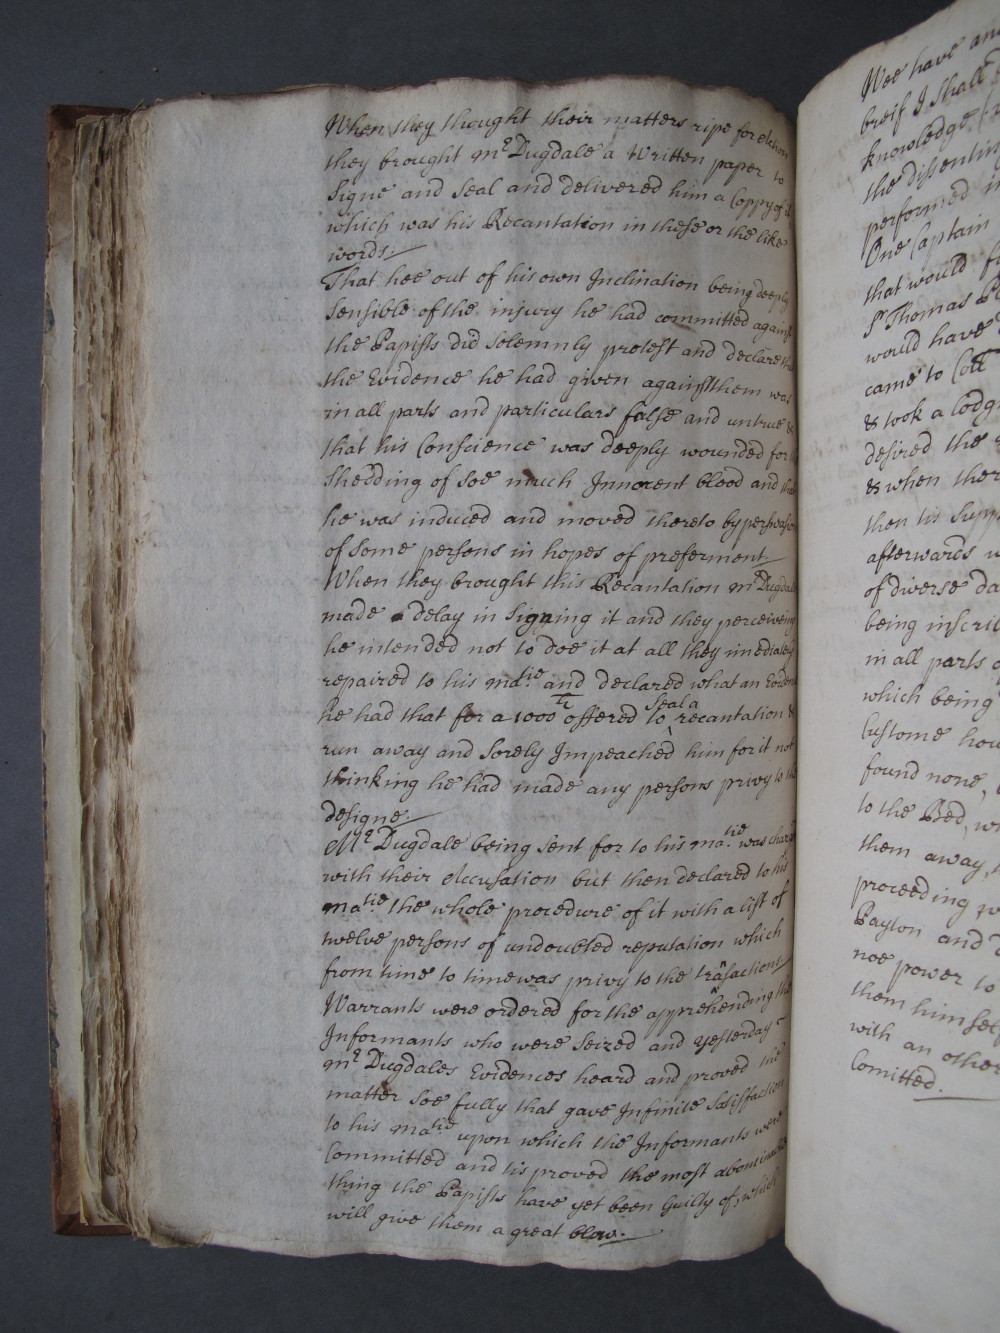 When they thought their matters ripe for
they brought Mr Dugdale a Written paper to
Signe and Seal and delivered him a Coppy of it
which was his Recantation in these or the like
words:
That hee out of his own Inclination being deeply
Sensible of the injury he had committed against
the Papists did Solemnly protest and declare
the Evidence he had given against them was
in all parts and particulars false and untrue &
that his Conscience was deeply wounded for
Shedding of Soe much Innocent blood and
he was induced and moved thereto by
of Some persons in hopes of preferment
When they brought this Recantation Mr
made delay in Signing it and they perceiveing
he intended not to doe it at all they imediately
repaired to his Matie and declared what an
he had that for a 1000 li offered to Seal a recantation &
run away and Sorely Impeached him for it not
thinking he had made any persons privy to
designe.
Mr Dugdale being Sent for to his Matie was
with their Accusation but then declared to his
Matie the whole procedure of it with a list of
twelve persons of undoubted reputation which
from time to time was privy to the trãsactions
Warrants were ordered for the apprehending the
Informants who were Seized and yesterday
Mr Dugdales Evidences heard and proved the
matter Soe fully that gave Infinite Satisfaction
to his Matie upon which the Informants were
Committed and tis proved the most
thing the Papists have yet been Guilty of, which
will give them a great blow.
Wee have
breif I Shall
knowledge
the
performed
One Captain
that would
Sr Thomas
would have
came to
& took a
desired the
& when
then his
afterwards
of diverse
being
in all parts
which being
Custome
found none,
to the Bed,
them away,
proceeding
Payton and
noe power to
them
with an other
Comitted.